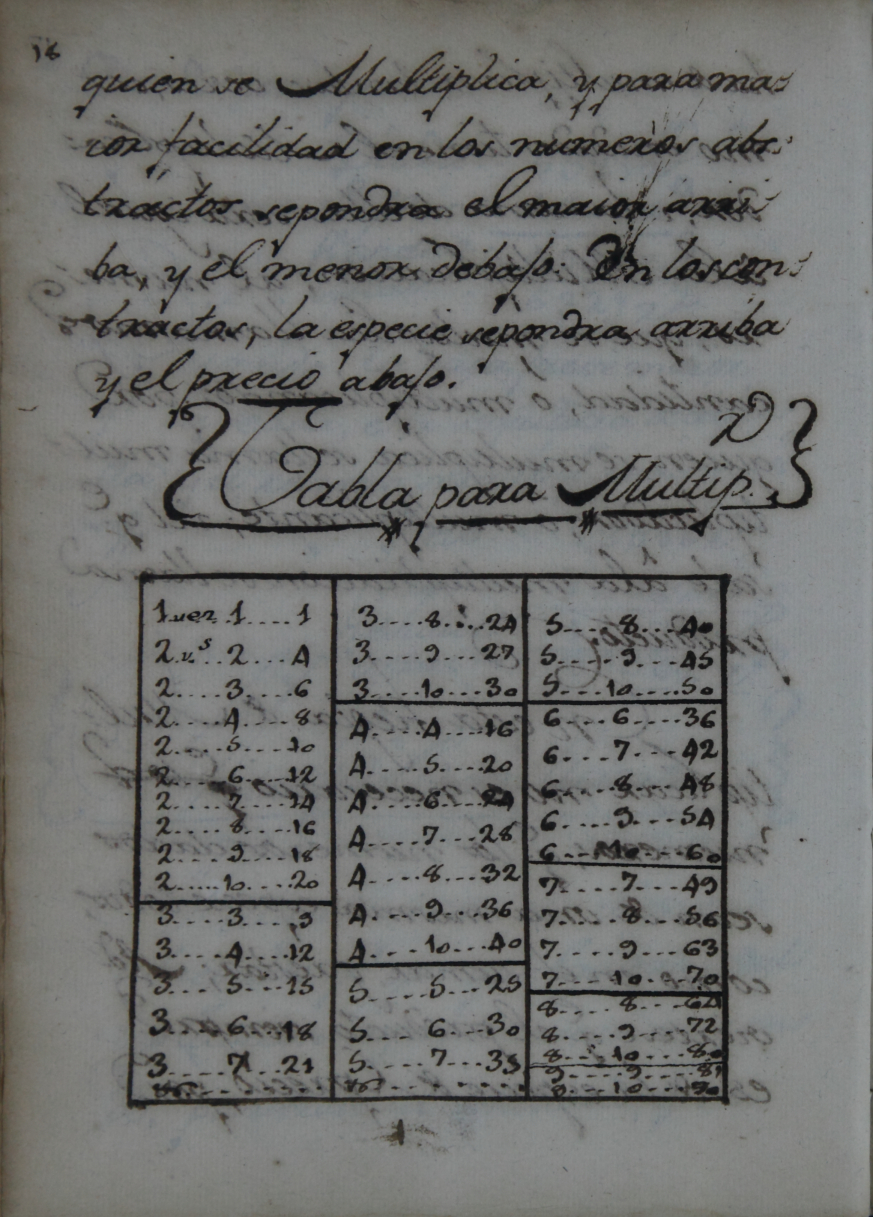 16
quien se Multiplica, y para ma=
ior facilidad en los numeros abs=
tractos se pondra el maior arri=
ba, y el menor debajo. En los con=
tractos, la especie se pondra arriba
y el precio abajo.
{Tabla para Multip.}
1 vez 1....1
2 v.s 2...4
2....3....6
2....4....8
2....5....10
2....6....12
2....7....14
2....8....16
2....9....18
2....10....20
3....3....9
3....4....12
3....5....15
3....6....18
3....7....21
3....8....24
3....9....27
3....10...30
4....4....16
4....5....20
4....6....24
4....7....28
4....8....32
4....9....36
4....10...40
5....5....25
5....6....30
5....7....35
5....8....40
5....9....45
5....10....50
6....6....36
6....7....42
6....8....48
6....9....54
6....10....60
7....7....49
7....8....56
7....9....63
7....10....70
8....8....64
8....9....72
8....10....80
9....9....81
9....10....90